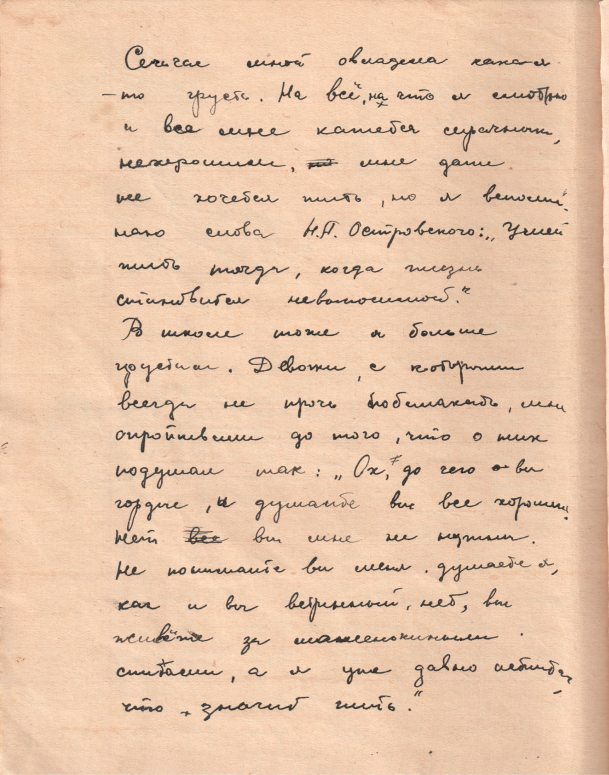 Сейчас мной овладела какая-
-то грусть. На всё, на что я смотрю
и все мне кажется мрачным,
нехорошим, мне даже
не хочется жить, но я вспоми-
наю слова Н.А. Островского: „Умей
жить тогда, когда жизнь
становится невыносимой."
В школе тоже я больше
грустила. Девочки, с которыми
всегда не прочь поболтать, мне
опротивели до того, что о них
подумал так: „Ох, до чего вы
гордые, и думаете вы все хорошие
нет вы мне не нужны.
Не понимаете вы меня. думаете я,
как и вы ветренный, нет, вы
живёте за
спинами, а я уже давно
что значит жить."